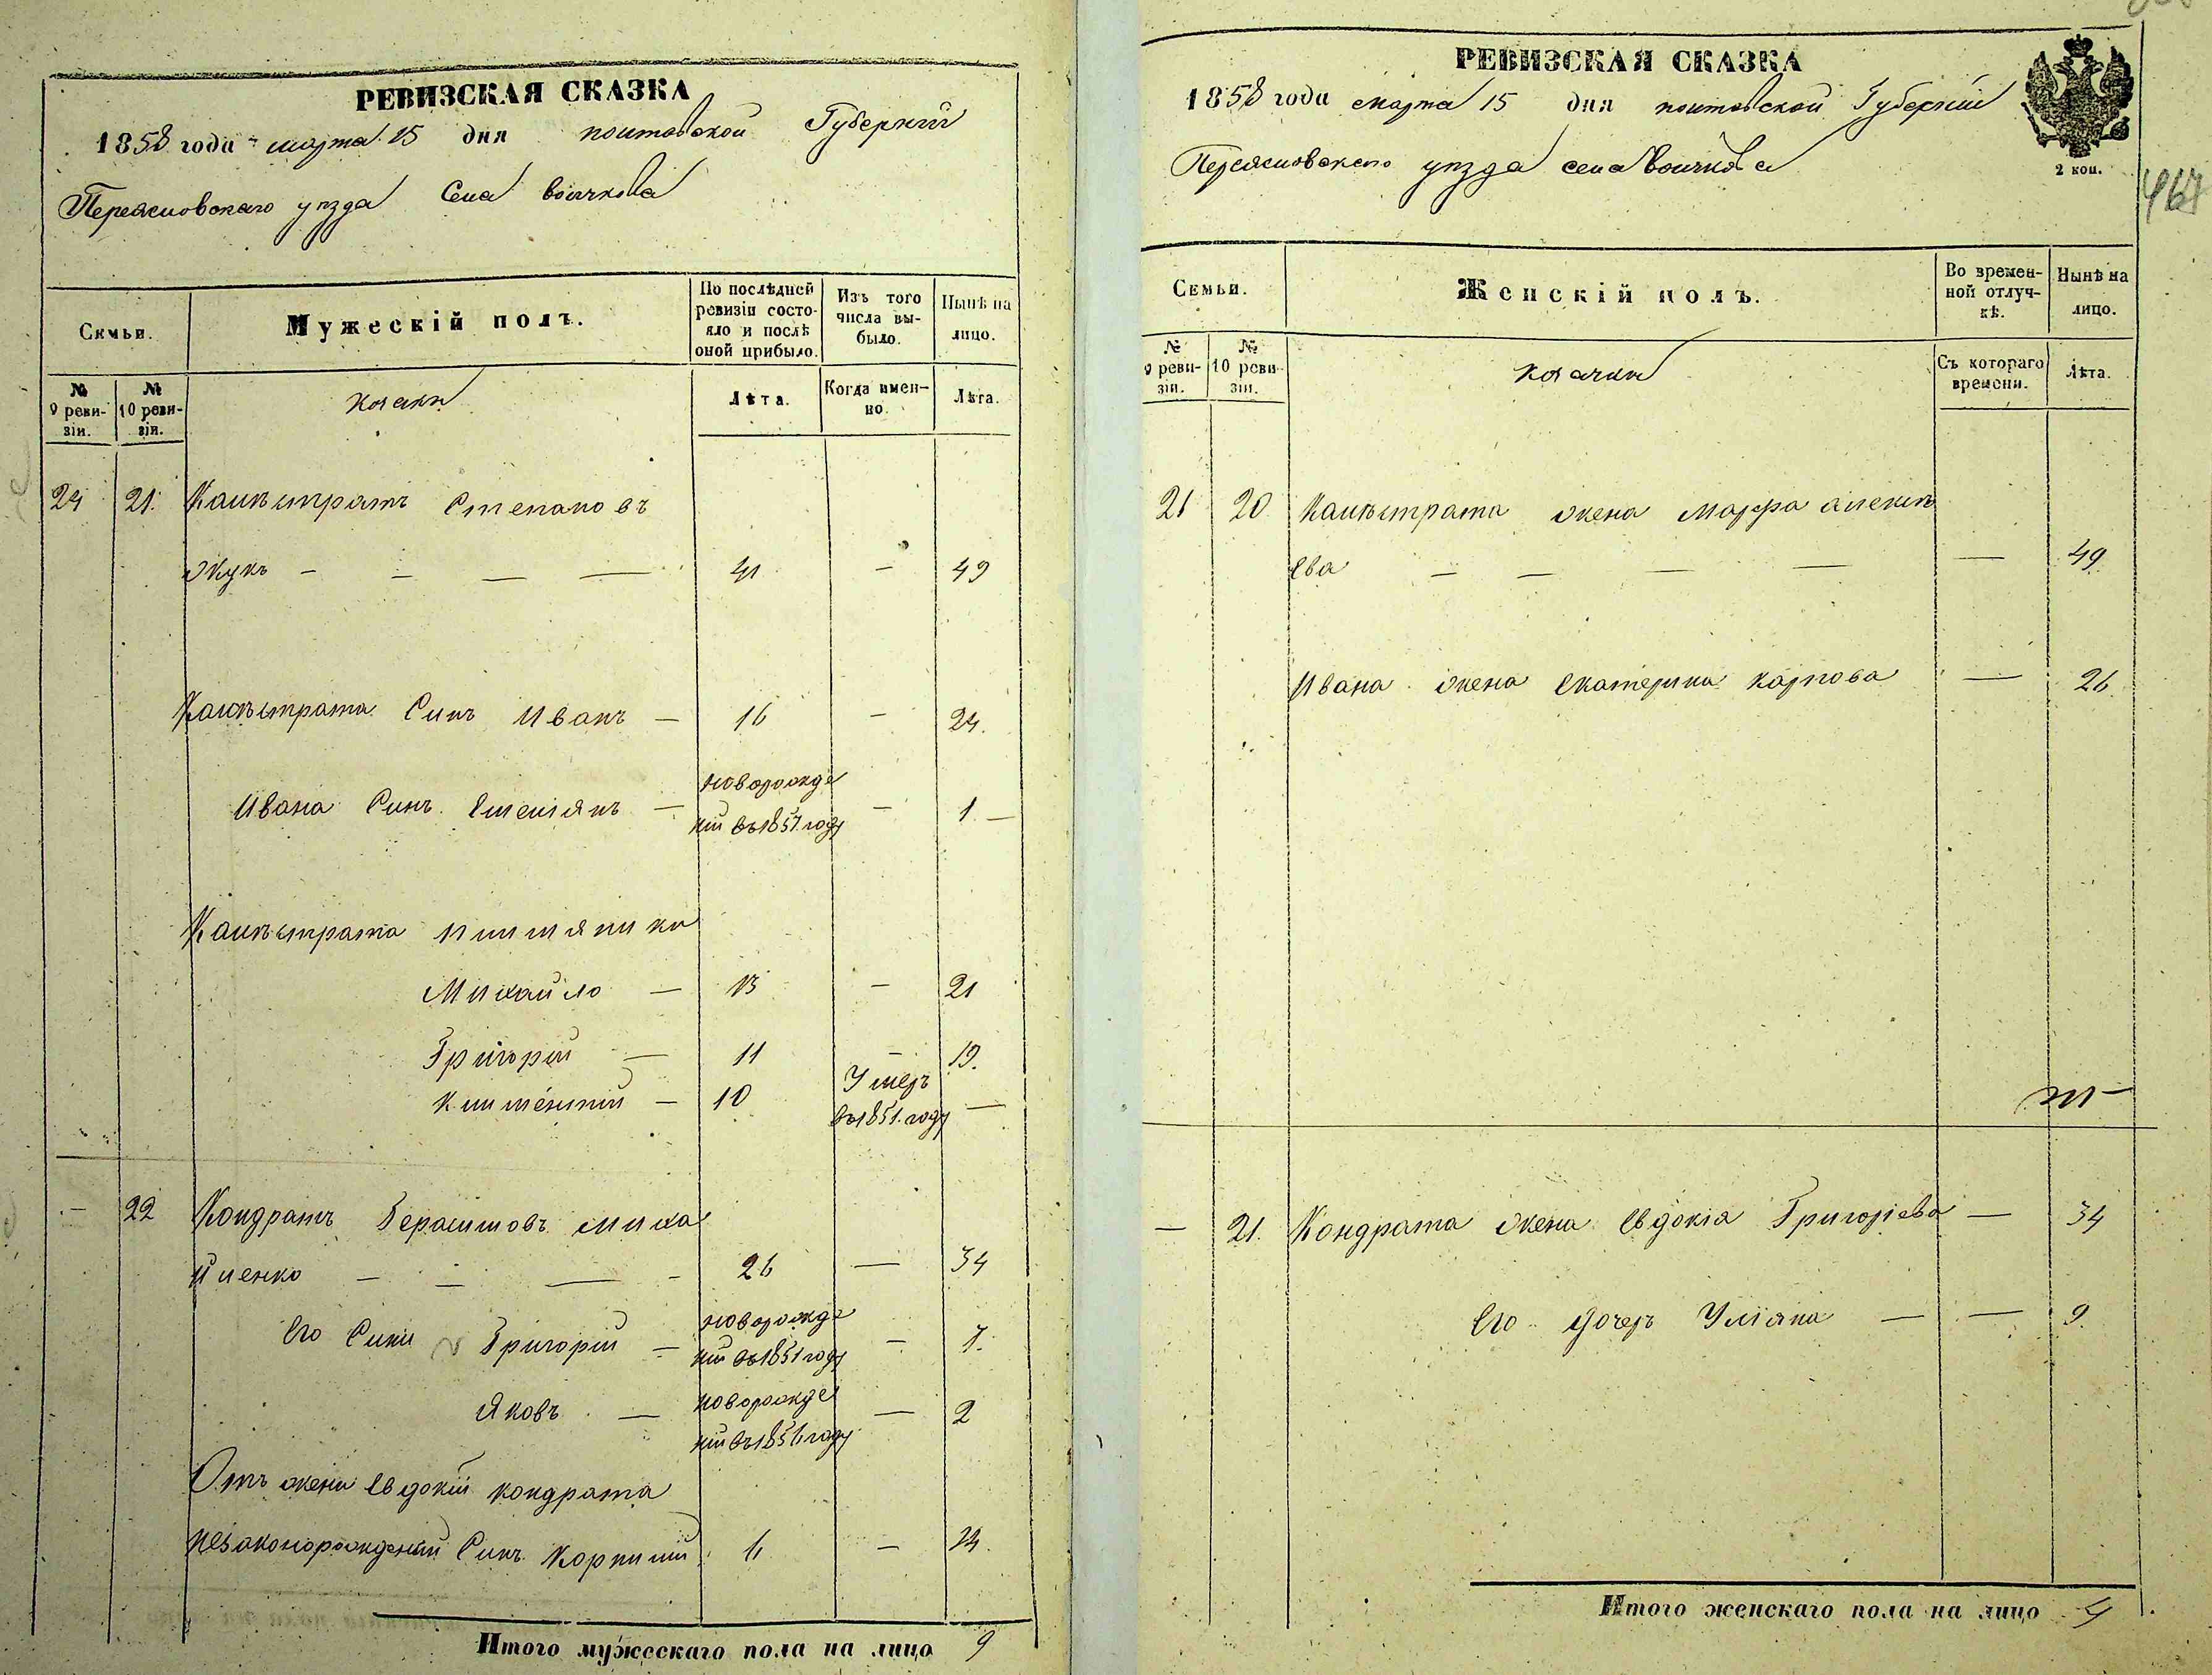 РЕВИЗСКАЯ СКАЗКА
1858 года марта 15 дня полтавской Губернии
Переясловскаго уѣзда Села Войчкова
Семьи.
Мужескій полъ.
По послѣдней ревизіи состояло и послѣ оной прибыло.
Изъ того числа выбыло.
Нынѣ на лицо.
№ 9 ревизіи.
№ 10 ревизіи.
козаки
Лѣта.
Когда именно.
Лѣта.
24 21. Калѣстратъ Степановъ
Жукъ — — — — 41 — 49
Калѣстрата Синъ Иванъ — 16 — 24.
новорожде
Ивана Синъ Емельянъ — — 1 —
ний въ 1857 году
Калѣстрата племяники
Михайло — 13 — 21
Григорій — 11 — 19.
Климентій — 10 Умеръ —
въ 1851 году
— 22 Кондратъ Герасимовъ Миха
йленко — — — — 26 — 34
новорожде
Его Сини Григорій — — 7.
ний въ 1851 году
новорожде
Яковъ — — 2
ний въ 1856 году
Отъ жени Евдокіи кондрата
незаконорожденый Синъ Корнилий 6 — 14.
Итого мужескаго пола на лицо 9
РЕВИЗСКАЯ СКАЗКА
1858 года марта 15 дня полтавской Губерніи
Переясловскаго уѣзда села Войчкова
2 коп.
467
Семьи.
Женскій полъ.
Во временной отлучкѣ.
Нынѣ на лицо.
№ 9 ревизіи.
№ 10 ревизіи.
козачки
Съ котораго времени.
Лѣта.
21 20 Калѣстрата жена Марфа алексѣ
ева — — — — — 49
Ивана жена Екатерина Карпова — 26
— 21. Кондрата жена Евдокія Григоріева — 34
Его дочерь Уліяна — — 9
Итого женскаго пола на лицо 4